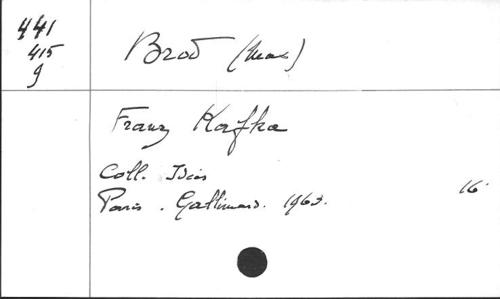 441
415
g
Brod (Max)
Franz Kafka
Coll. Idées
Paris. Gallimard. 1963. 16°